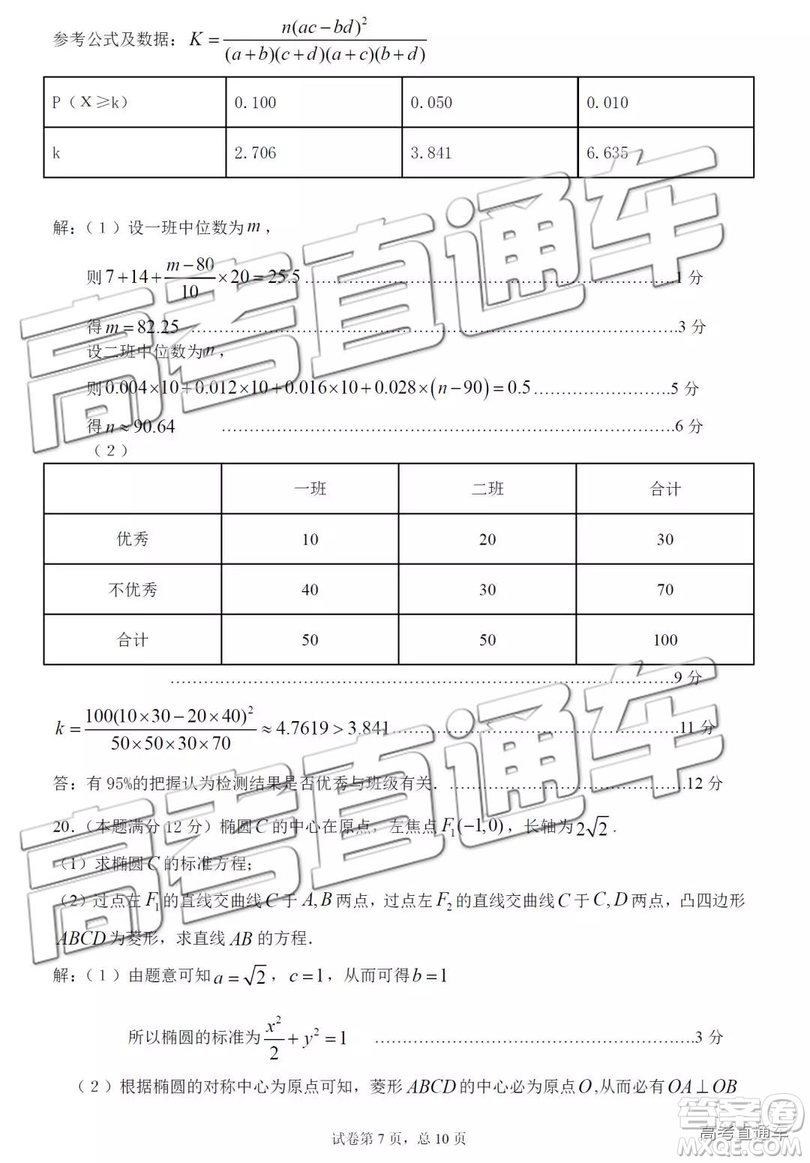 参考公式及数据：K = n(ac−bd)² / (a+b)(c+d)(a+c)(b+d)
P（X≥k） 0.100 0.050 0.010
k 2.706 3.841 6.635
解：（1）设一班中位数为m，
则7+14+(m−80)/10×20=25.5……………………1 分
得m=82.25……………………3 分
设二班中位数为n，
则0.004×10+0.012×10+0.016×10+0.028×(n−90)=0.5……………………5 分
得n≈90.64 ……………………6 分
（2）
一班 二班 合计
优秀 10 20 30
不优秀 40 30 70
合计 50 50 100
……………………9 分
k = 100(10×30−20×40)² / 50×50×30×70 ≈4.7619>3.841……………………11 分
答：有 95%的把握认为检测结果是否优秀与班级有关．……………………12 分
20.（本题满分 12 分）椭圆C的中心在原点，左焦点F₁(−1,0)，长轴为2√2．
(1）求椭圆C的标准方程；
(2）过点在F₁的直线交曲线C于A,B两点，过点左F₂的直线交曲线C于C,D两点，凸四边形
ABCD为菱形，求直线AB的方程．
解：（1）由题意可知a=√2，c=1，从而可得b=1
所以椭圆的标准为x²/2+y²=1 ……………………3 分
（2）根据椭圆的对称中心为原点可知，菱形ABCD的中心必为原点O,从而必有OA⊥OB
试卷第 7 页，总 10 页
高考直通车
高考直通车
答案卷
高考直通车
MXQE.COM